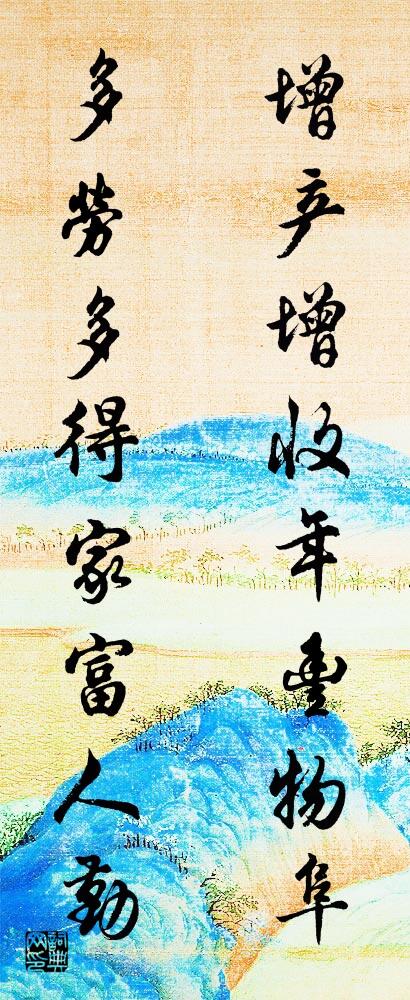 增产增收年豐物阜
多勞多得家富人勤
詞典網印